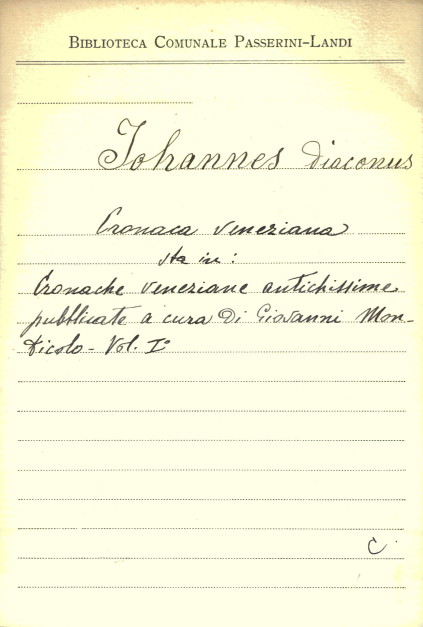 BIBLIOTECA COMUNALE PASSERINI-LANDI
Iohannes diaconus
Cronaca veneziana
sta in:
Cronache veneziane antichissime
pubblicate a cura di Giovanni Mon-
ticolo - Vol. I°
C.